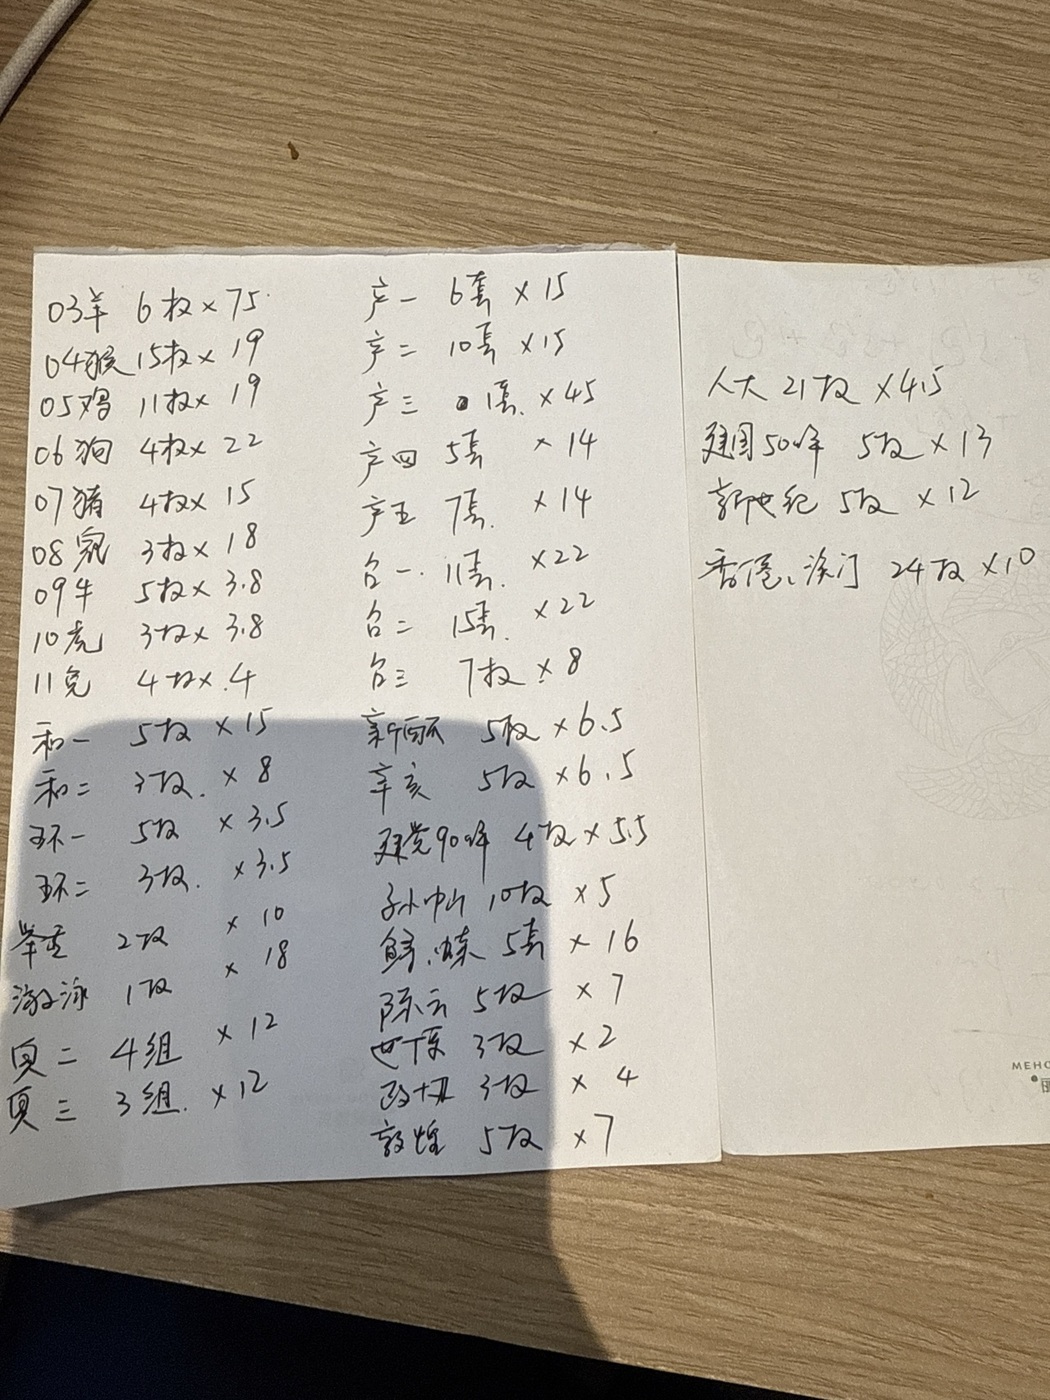 03羊 6枚 × 75
04猴 15枚 × 19
05鸡 11枚 × 19
06狗 4枚 × 22
07猪 4枚 × 15
08鼠 3枚 × 18
09牛 5枚 × 3.8
10虎 3枚 × 3.8
11兔 4枚 × 4
和一 5枚 × 15
和二 3枚 × 8
环一 5枚 × 3.5
环二 3枚 × 3.5
举重 2枚 × 10
游泳 1枚 × 18
贝二 4组 × 12
贝三 3组 × 12
产一 6套 × 15
产二 10套 × 15
产三 1套 × 45
产四 5套 × 14
产五 7套 × 14
台一 11套 × 22
台二 15套 × 22
台三 7枚 × 8
5枚 × 6.5
辛亥 5枚 × 6.5
建党90周年 4枚 × 5.5
孙中山 10枚 × 5
5套 × 16
陈云 5枚 × 7
3枚 × 2
3枚 × 4
敦煌 5枚 × 7
人大 21枚 × 4.5
建国50周年 5枚 × 13
新世纪 5枚 × 12
香港、澳门 24枚 × 10
MEHO